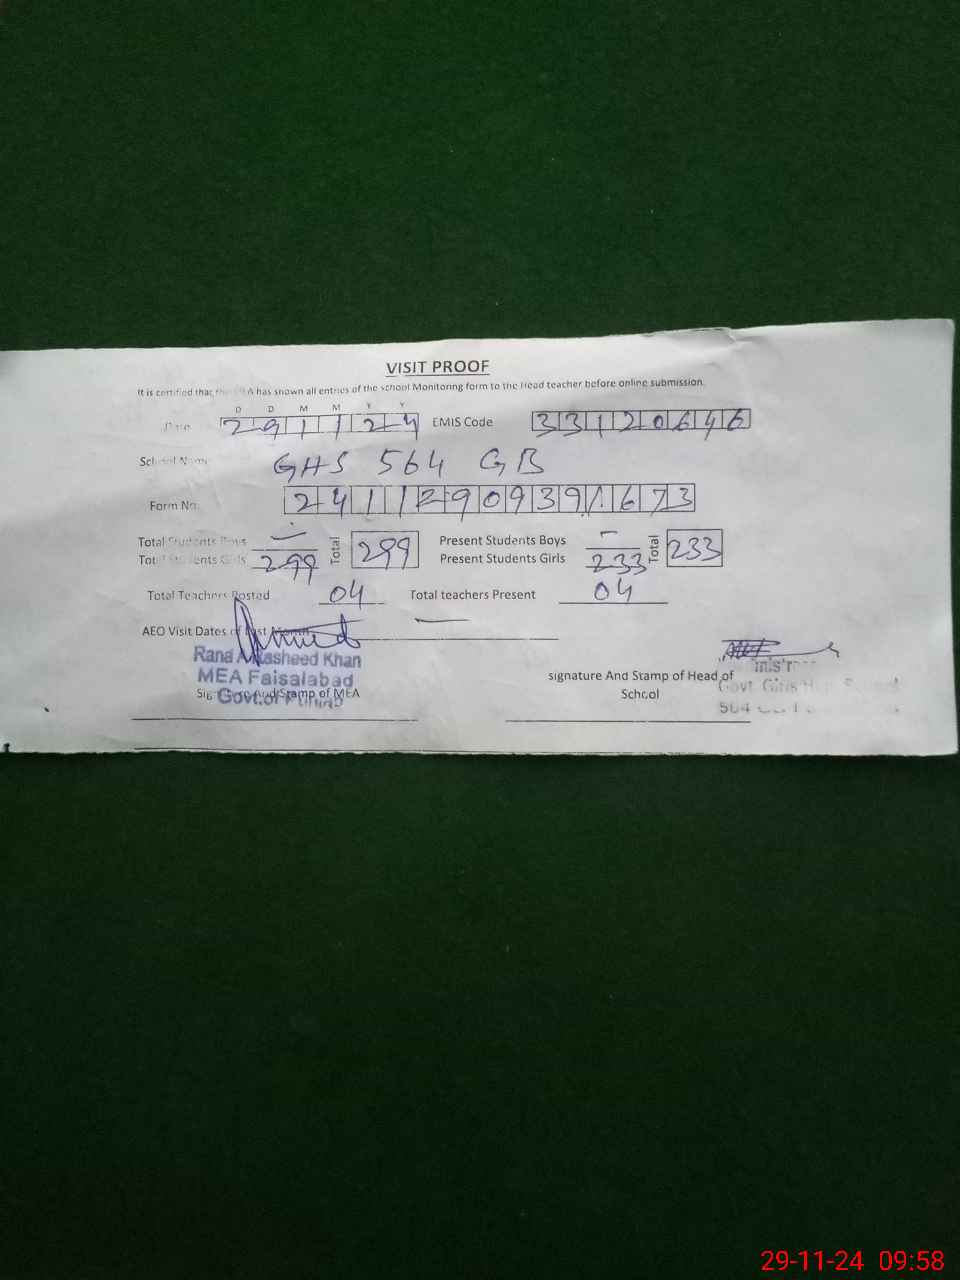 VISIT PROOF
It is certified that the MEA has shown all entries of the school Monitoring form to the Head teacher before online submission.
D D M M Y Y
Date 291124 EMIS Code 33120646
School Name GHS 564 GB
Form No. 24112909391673
Total Students Boys — Present Students Boys —
Total Students Girls 299 Total 299 Present Students Girls 233 Total 233
Total Teachers Posted 04 Total teachers Present 04
AEO Visit Dates of Last Month —
Rana A Rasheed Khan
MEA Faisalabad
Govt.of Punjab
Signature And Stamp of MEA
signature And Stamp of Head of
School
Govt Girls High School
564
29-11-24 09:58